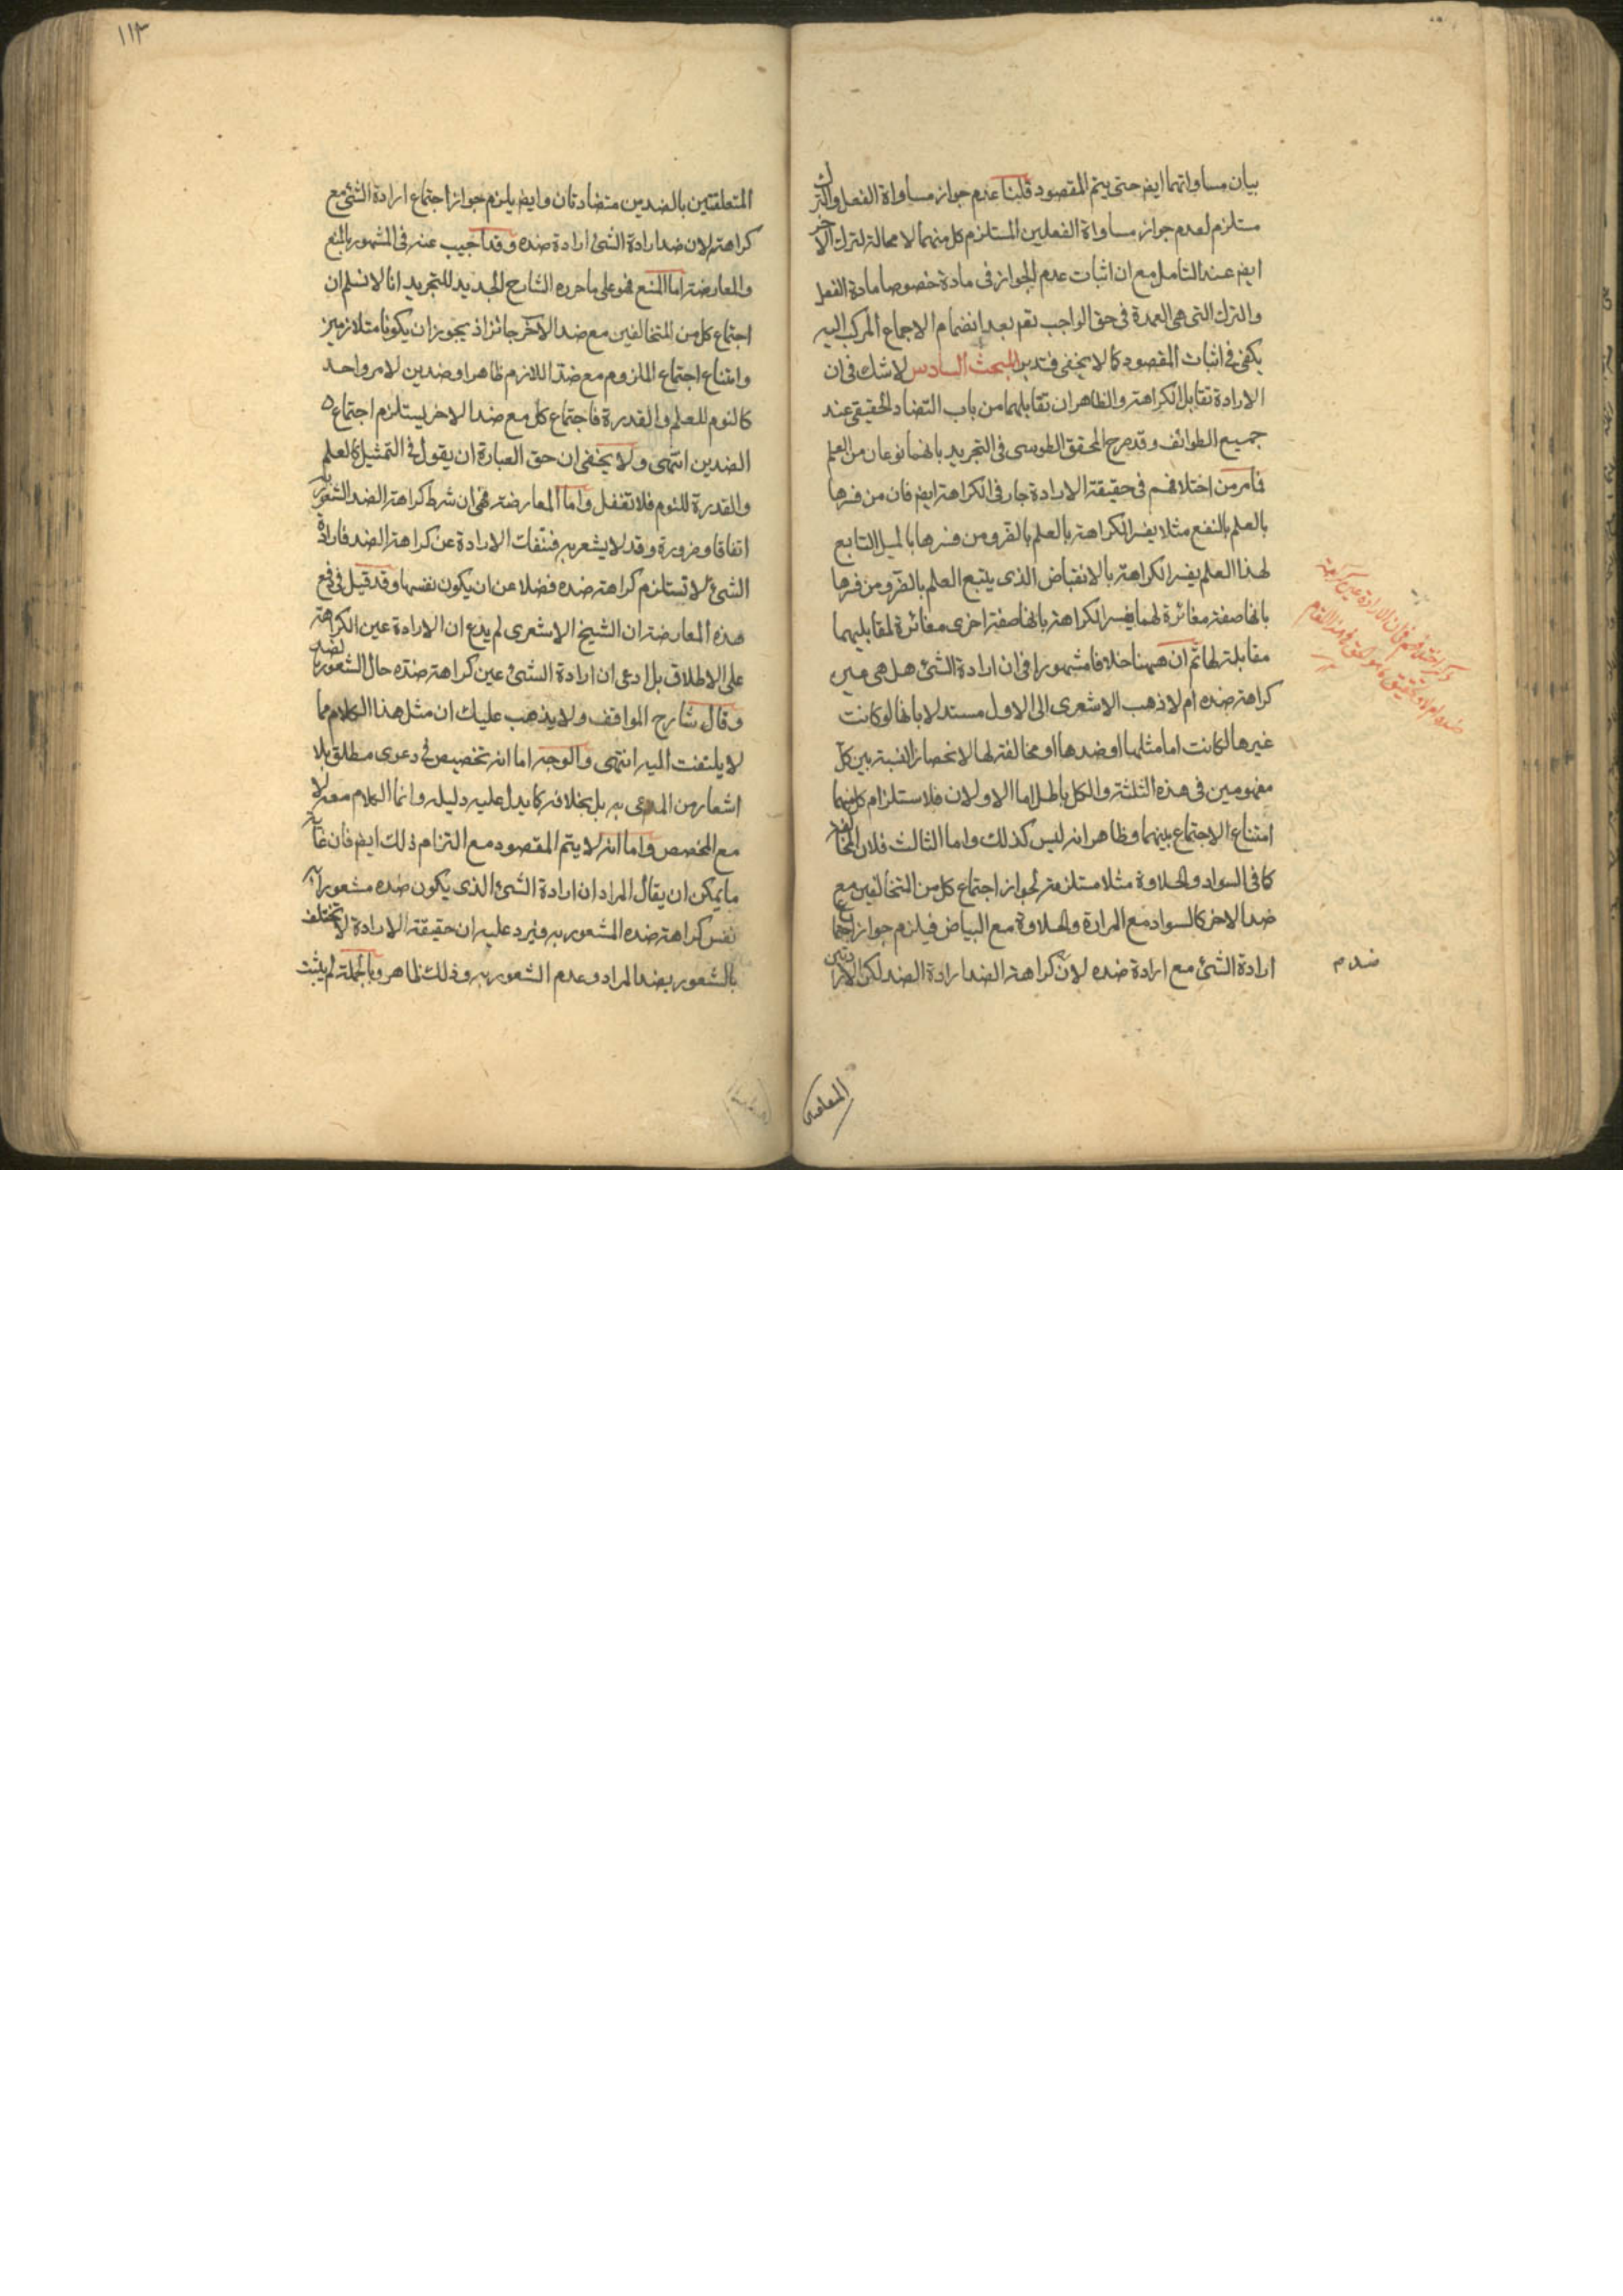 بيان مساواتهما ايض حتى يتم المقصود قلنا عدم جواز مساواة الفعل والترك
مستلزم لعدم جواز مساواة الفعلين المستلزم كل منهما لا محالة لترك الآخر
ايض عند التامل مع ان اثبات عدم الجواز فى مادة خصوصا مادة الفعل
والترك التى هى العمدة فى حق الواجب تعم بعد انضمام الاجماع المركب اليه
يكفى فى اثبات المقصود كما لا يخفى فتدبر المبحث السادس لا شك فى ان
الارادة تقابل الكراهة والظاهر ان تقابلهما من باب التضاد الحقيقى عند
جميع الطوائف وقد صرح المحقق الطوسى فى التجريد بانهما نوعان من العلم
فما مر من اختلافهم فى حقيقة الارادة جار فى الكراهة ايض فان من فسرها
بالعلم بالنفع مثلا يفسر الكراهة بالعلم بالضر ومن فسرها بالميل التابع
لهذا العلم يفسر الكراهة بالانقباض الذى يتبع العلم بالضر ومن فسرها
بانها صفة مغائرة لهما يفسر الكراهة بانها صفة اخرى مغائرة لمقابليهما
مقابلة لها ثم ان ههنا خلافا مشهورا فى ان ارادة الشئ هل هى عين
كراهة ضده ام لا ذهب الاشعرى الى الاول مستدلا بانها لو كانت
غيرها لكانت اما مثلها او ضدها او مخالفة لها لانحصار النسبة بين كل
مفهومين فى هذه الثلثة والكل باطل اما الاولان فلاستلزام كل منهما
امتناع الاجتماع بينهما وظاهر انه ليس كذلك واما الثالث فلان المخالفة
كما فى السواد والحلاوة مثلا مستلزمة لجواز اجتماع كل من المتخالفين مع
ضد الاخر كالسواد مع المرارة والحلاوة مع البياض فيلزم جواز اجتماع
ارادة الشئ مع ارادة ضده لان كراهة الضد ارادة الضد لكن الارادتين
ذكر اختلافهم فى ان الارادة عين كراهة
ضده ام لا وتحقيق ما هو الحق فى هذا المقام
ضده م
١١٣
المتعلقتين بالضدين متضادتان وايض يلزم جواز اجتماع ارادة الشئ مع
كراهته لان ضد ارادة الشئ ارادة ضده وقد اجيب عنه فى المشهور بالمنع
والمعارضة اما المنع فهو على ما حرره الشارح الجديد للتجريد انا لا نسلم ان
اجتماع كل من المتخالفين مع ضد الآخر جائز اذ يجوز ان يكونا متلازمين
وامتناع اجتماع الملزوم مع ضد اللازم ظاهر او ضدين لامر واحد
كالنوم للعلم والقدرة فاجتماع كل مع ضد الاخر يستلزم اجتماع
الضدين انتهى ولا يخفى ان حق العبارة ان يقول فى التمثيل كالعلم
والقدرة للنوم فلا تغفل واما المعارضة فهى ان شرط كراهة الضد الشعور به
اتفاقا وضرورة وقد لا يشعر به فتنفك الارادة عن كراهة الضد فارادة
الشئ لا تستلزم كراهة ضده فضلا عن ان يكون نفسها وقد قيل فى دفع
هذه المعارضة ان الشيخ الاشعرى لم يدع ان الارادة عين الكراهة
على الاطلاق بل ادعى ان ارادة الشئ عين كراهة ضده حال الشعور بضده
وقال شارح المواقف ولا يذهب عليك ان مثل هذا الكلام مما
لا يلتفت اليه انتهى والوجه اما انه تخصيص فى دعوى مطلق بلا
اشعار من المدعى به بل بخلافه كما يدل عليه دليله وانما الكلام معه لا
مع المخصص واما انه لا يتم المقصود مع التزام ذلك ايض فان غاية
ما يمكن ان يقال المراد ان ارادة الشئ الذى يكون ضده مشعورا به
نفس كراهة ضده المشعور به ويرد عليه ان حقيقة الارادة لا تختلف
بالشعور بضد المراد وعدم الشعور به وذلك ظاهر وبالجملة لم يثبت